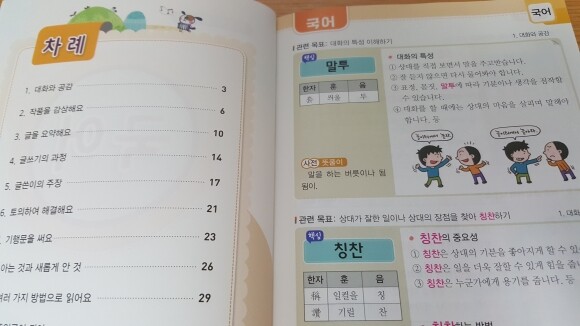 차례
1. 대화와 공감 3
2. 작품을 감상해요 6
3. 글을 요약해요 10
4. 글쓰기의 과정 14
5. 글쓴이의 주장 17
6. 토의하여 해결해요 21
7. 기행문을 써요 23
아는 것과 새롭게 안 것 26
여러 가지 방법으로 읽어요 29
국어
국어
관련 목표: 대화의 특성 이해하기
1. 대화와 공감
핵심
말투
한자 훈 음
套 씌울 투
사전 뜻풀이
말을 하는 버릇이나 됨
됨이.
• 대화의 특성
① 상대를 직접 보면서 말을 주고받습니다.
② 잘 듣지 않으면 다시 물어봐야 합니다.
③ 표정, 몸짓, 말투에 따라 기분이나 생각을 짐작할
수 있습니다.
④ 대화를 할 때에는 상대의 마음을 살피며 말해야
합니다. 등
관련 목표: 상대가 잘한 일이나 상대의 장점을 찾아 칭찬하기
1. 대화
핵심
칭찬
한자 훈 음
稱 일컬을 칭
讚 기릴 찬
• 칭찬의 중요성
① 칭찬은 상대의 기분을 좋아지게 할 수 있
② 칭찬은 일을 더욱 잘할 수 있게 힘을 줍니
③ 칭찬은 누군가에게 용기를 줍니다. 등